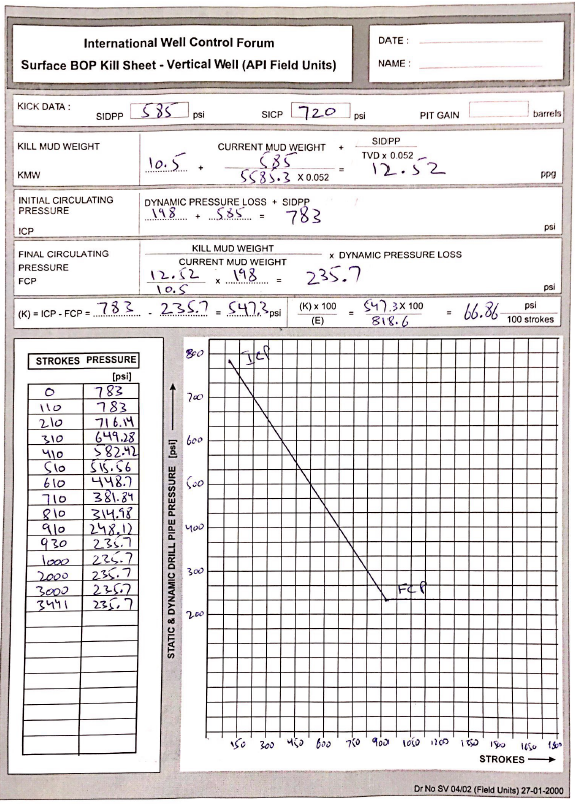 International Well Control Forum
Surface BOP Kill Sheet - Vertical Well (API Field Units)
DATE :
NAME :
KICK DATA :
SIDPP 585 psi SICP 720 psi PIT GAIN barrels
KILL MUD WEIGHT
KMW
CURRENT MUD WEIGHT + SIDPP / TVD x 0.052
10.5 + 585 / 5585.3 X 0.052 = 12.52 ppg
INITIAL CIRCULATING PRESSURE
ICP
DYNAMIC PRESSURE LOSS + SIDPP
198 + 585 = 783 psi
FINAL CIRCULATING PRESSURE
FCP
KILL MUD WEIGHT / CURRENT MUD WEIGHT x DYNAMIC PRESSURE LOSS
12.52 / 10.5 x 198 = 235.7 psi
(K) = ICP - FCP = 783 - 235.7 = 547.3 psi
(K) x 100 / (E) = 547.3 X 100 / 818.6 = 66.86 psi / 100 strokes
STROKES PRESSURE
[psi]
0 783
110 783
210 716.14
310 649.28
410 582.42
510 515.56
610 448.7
710 381.84
810 314.98
910 248.12
930 235.7
1000 235.7
2000 235.7
3000 235.7
3441 235.7
STATIC & DYNAMIC DRILL PIPE PRESSURE [psi]
800
700
600
500
400
300
200
ICP
FCP
150 300 450 600 750 900 1050 1200 1350 1500 1650 1800
STROKES
Dr No SV 04/02 (Field Units) 27-01-2000